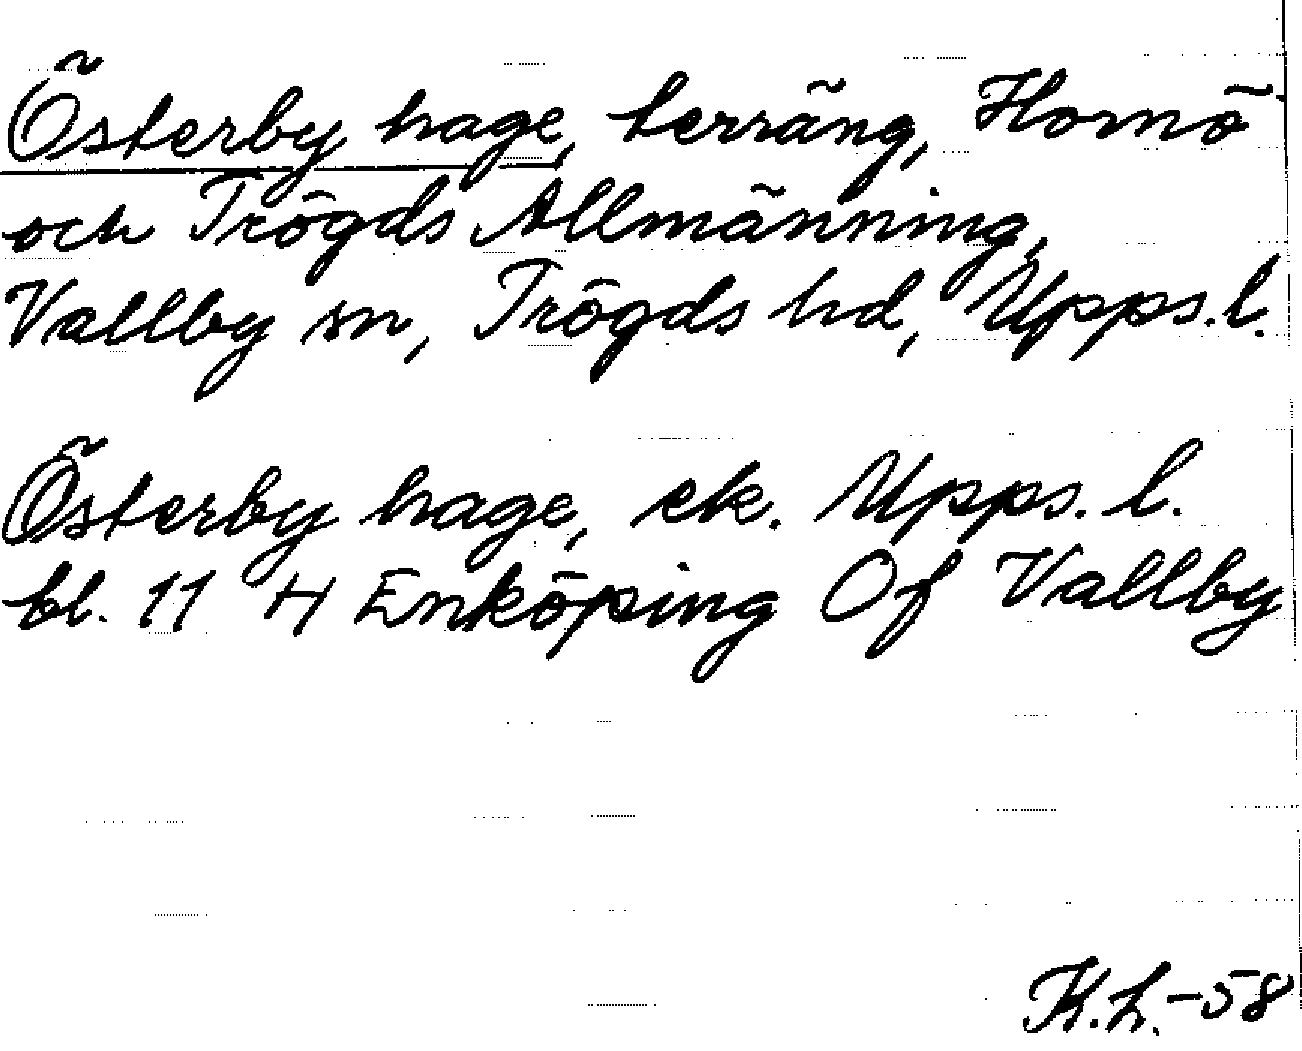 Österby hage, terräng, Homö
och Trögds Allmänning,
Vallby sn, Trögds hd, Upps.l.
Österby hage, ek. Upps. l.
bl. 11 H Enköping Of Vallby
K.L.-58